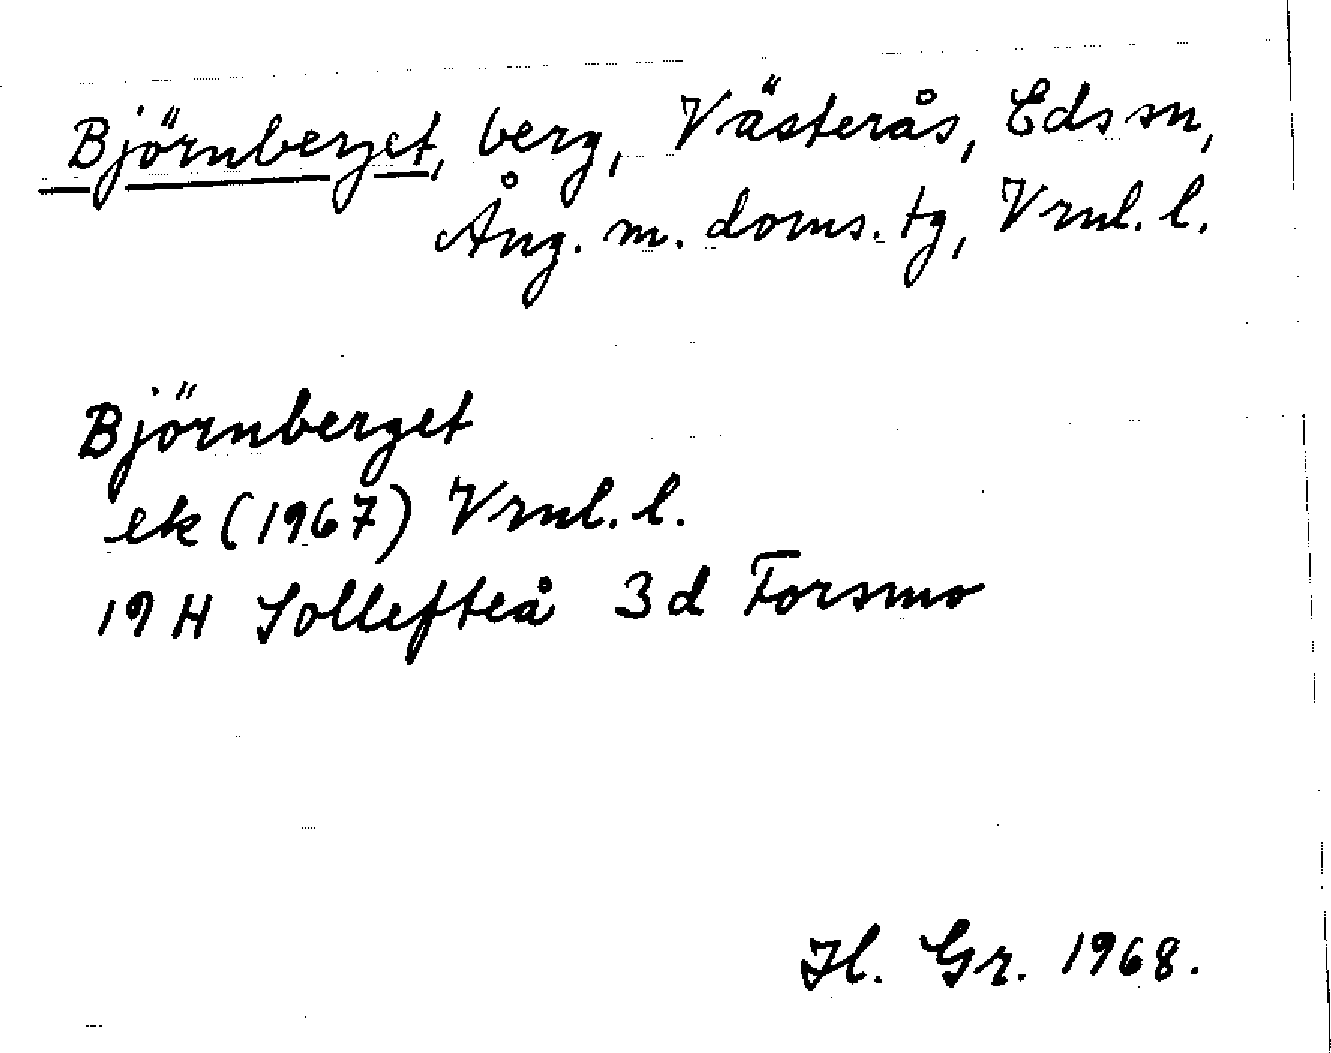 Björnberget, berg, Västerås, Eds sn,
Ång. m. doms. tg, Vrnl. l.
Björnberget
ek (1967) Vrnl. l.
19 H Sollefteå 3d Forsmo
Hl. Gr. 1968.